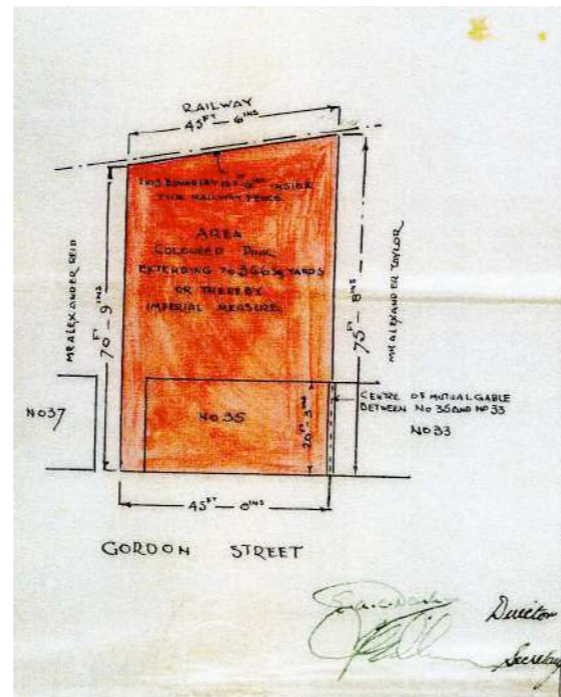 RAILWAY
45FT — 6INS
THIS BOUNDARY IS INSIDE
THE RAILWAY FENCE
AREA
COLOURED PINK
EXTENDING TO 366 SQ YARDS
OR THEREBY
IMPERIAL MEASURE
MR ALEXANDER REID
70FT — 9INS
75FT — 8INS
MR ALEXANDER TAYLOR
NO 37
NO 35
20FT — 3INS
CENTRE OF MUTUAL GABLE
BETWEEN NO 35 AND NO 33
NO 33
45FT — 0INS
GORDON STREET
Director
Secretary